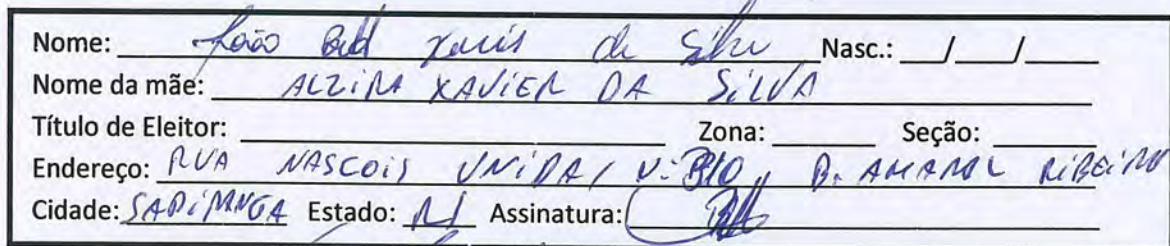 Nome: João de Nasc.: / /
Nome da mãe: ALZIRA XAVIER DA SILVA
Título de Eleitor: Zona: Seção:
Endereço: RUA UNIDA, B. AMARAL RIBEIRO
Cidade: SAPIRANGA Estado: Assinatura: